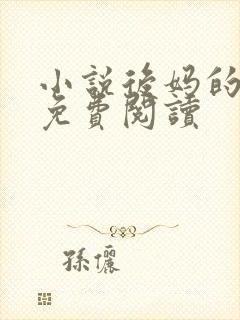 小說後妈的
免費閱讀
孫儷